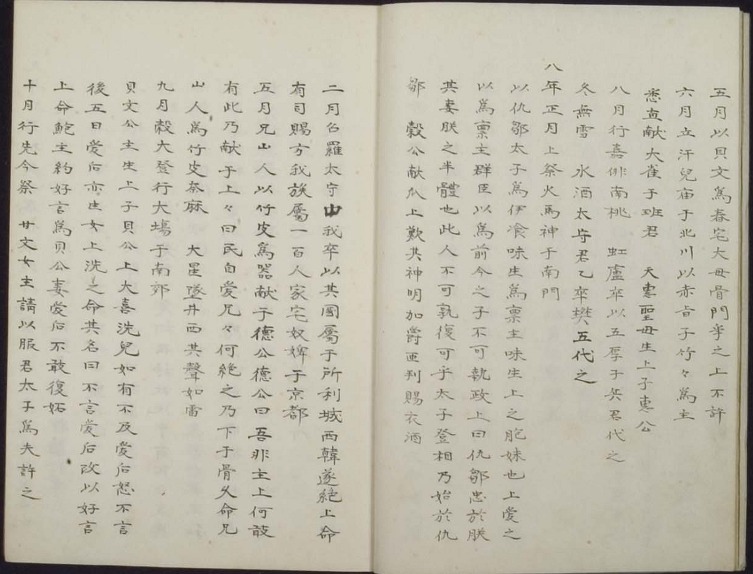 五月以貝文為春宅大母骨門爭之上不許
六月立汗兒庙于北川以赤吉子竹々為主
悉直献大雀于班君　大聖母生上子惠公
八月行嘉俳南桃　虹廬卒以五厚子英君代之
冬無雪　水酒太守君乙卒樊五代之
八年正月上祭火馬神于南門
以仇鄒太子為伊飡味生為禀主味生上之胞妹也上愛之
以為禀主群臣以為前今之子不可執政上曰仇鄒忠於朕
其妻朕之半體也此人不可孰復可乎太子登相乃始於仇
鄒　穀公献瓜上歎其神明加爵匝刋賜衣酒
二月召羅太守山我卒以其國屬于所利城西韓遂絶上命
有司賜方我族屬一百人家宅奴婢于京都
五月兄山人以竹皮為器献于德公德公曰吾非主上何敢
有此乃献于上々曰民自愛兄々何絶之乃下于骨父命兄
山人為竹皮奈麻　大星墜井西其聲如雷
九月穀大登行大場于南郊
貝文公主生上子貝公上大喜洗兒如有不及愛后怒不言
後五日愛后亦生女上洗之命其名曰不言愛后改以好言
上命鮑主約好言為貝公妻愛后不敢復妬
十月行先今祭　廿文女主請以服君太子為夫許之